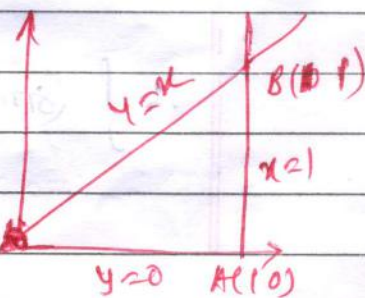 y=x
B(1 1)
x=1
y=0 A(1 0)